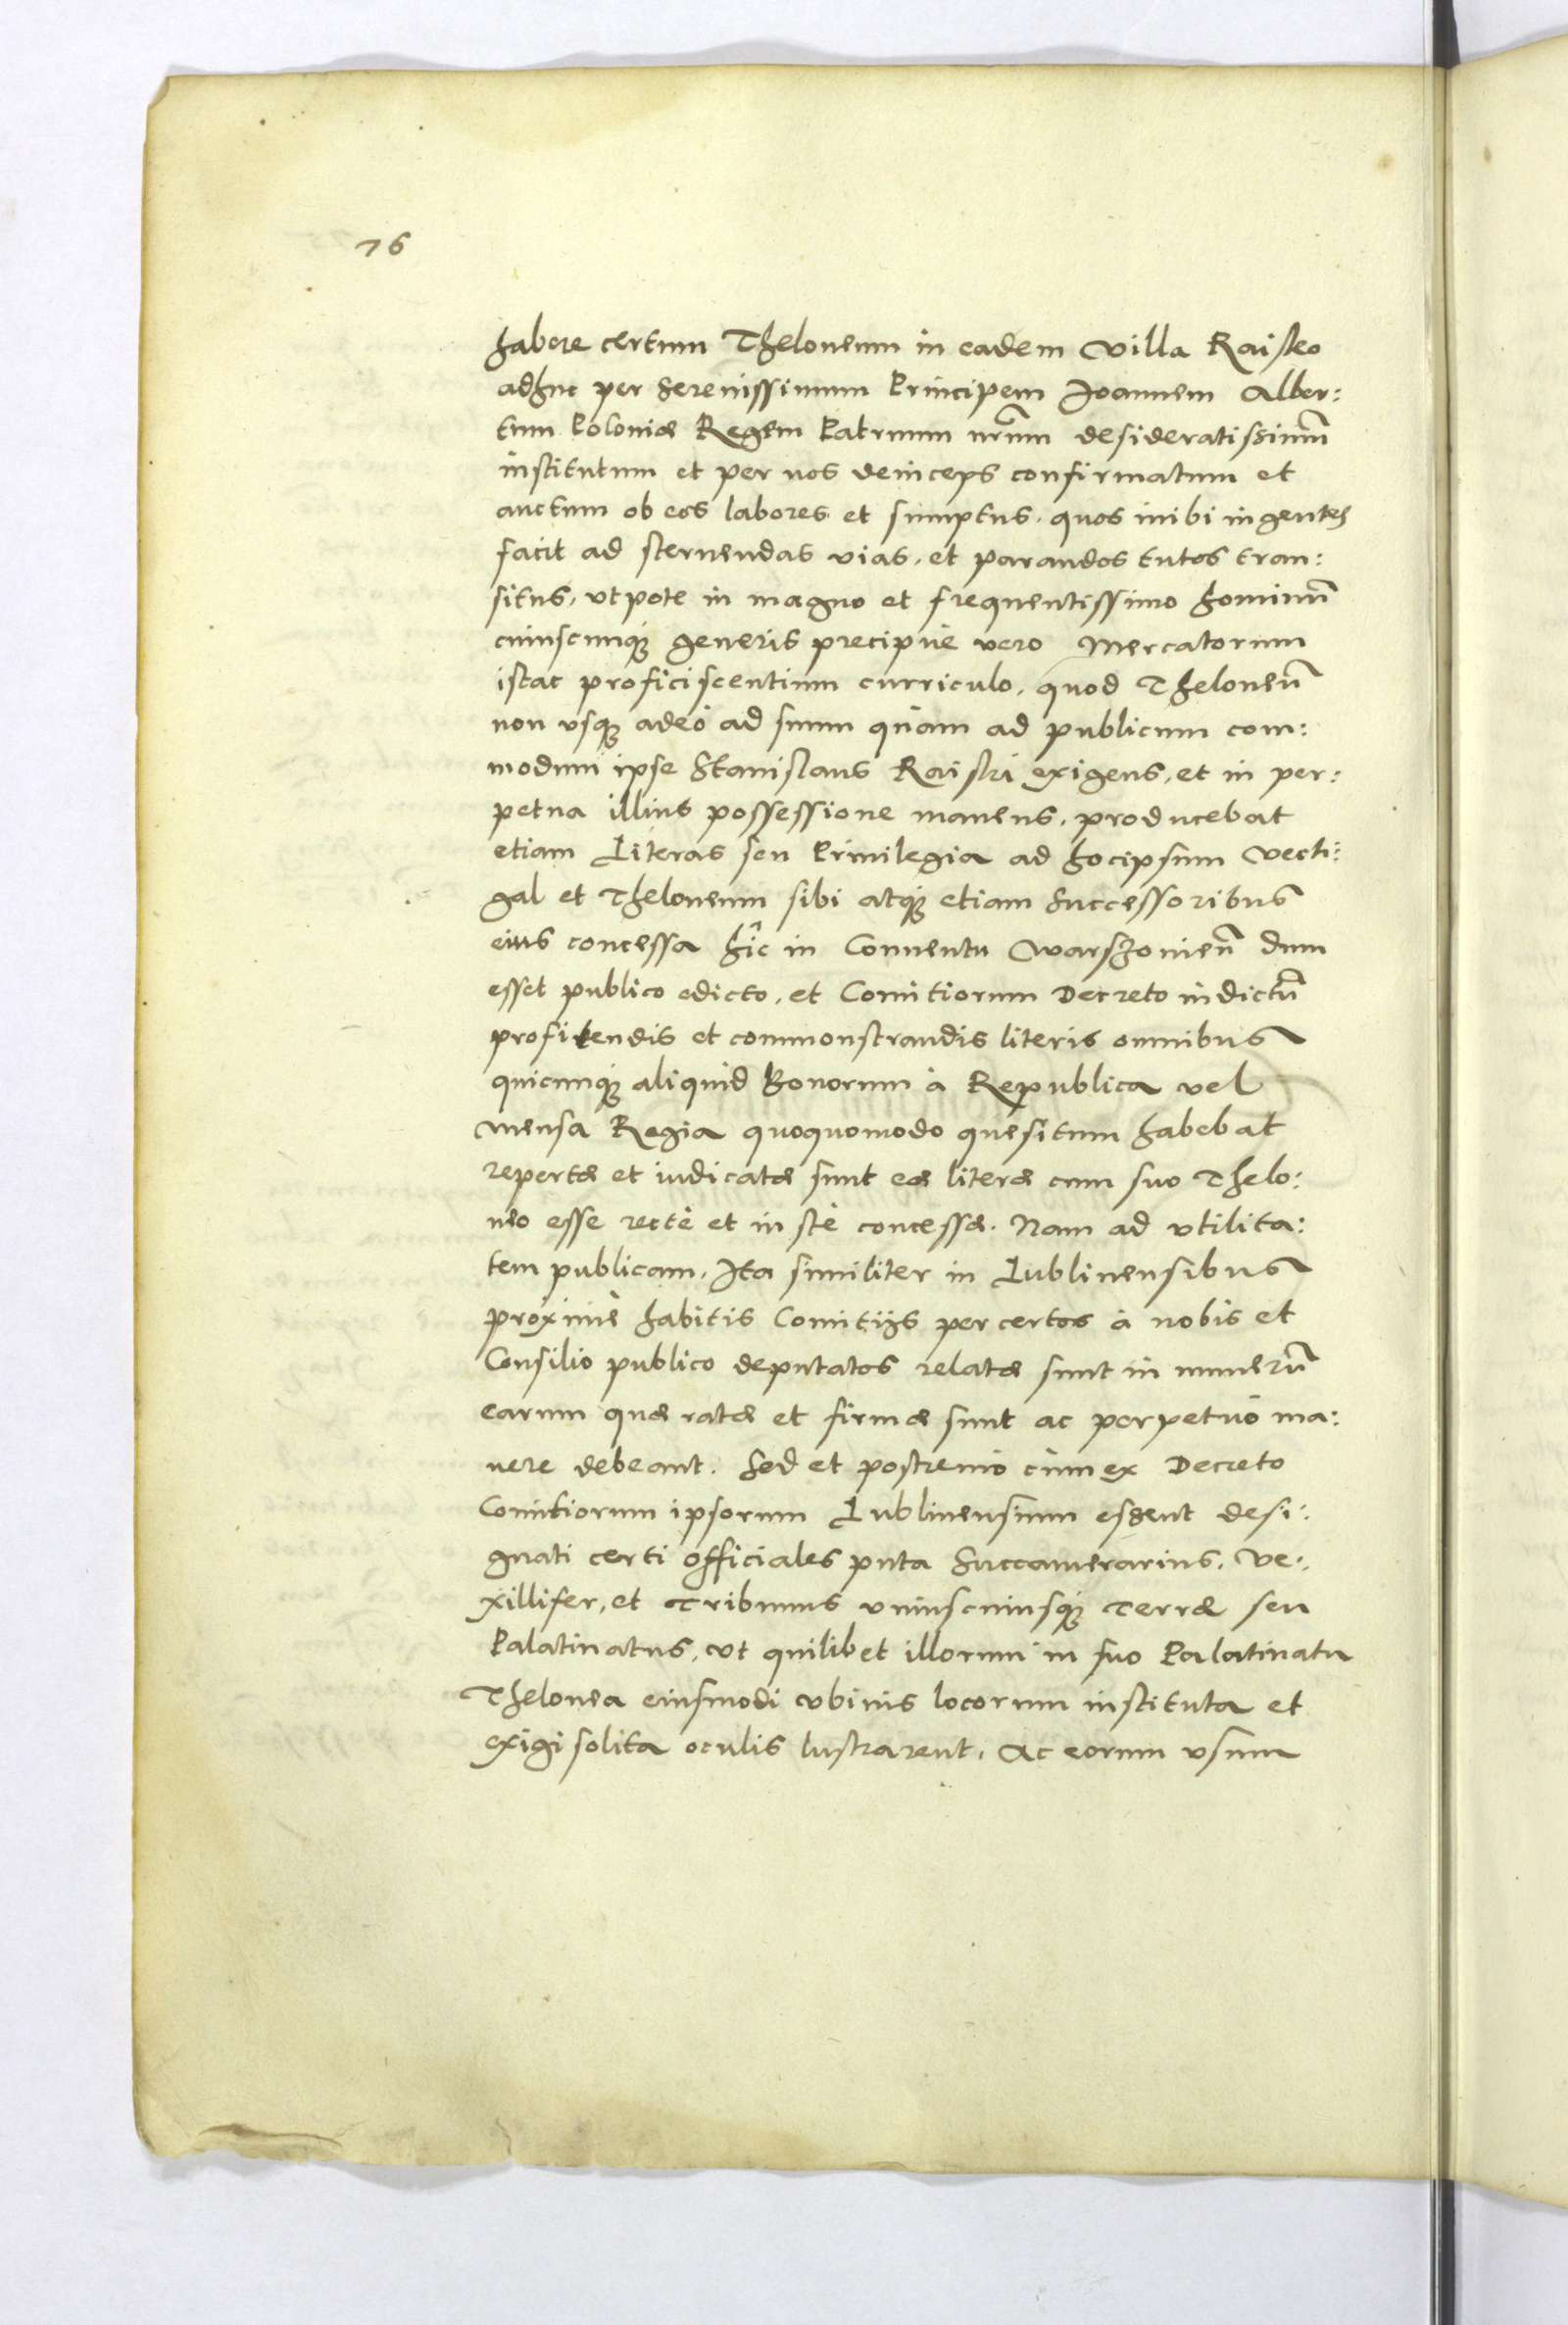 76
habere certum Theloneum in eadem Villa Raisko
adhuc per Serenissimum Principem Joannem Alber:
tum Poloniæ Regem Patruum nrũm desideratissimũ
institutum et per nos deinceps confirmatum et
auctum ob eos labores et sumptus, quos inibi ingentes
facit ad sternendas vias, et parandos tutos tran:
situs, vtpote in magno et frequentissimo hominũ
cuiuscunqȝ generis precipuè vero Mercatorum
istac proficiscentium curriculo, quod Theloneũ
non vsqȝ adeò ad suum quàm ad publicum com:
modum ipse Stanislaus Raiski exigens, et in per:
petua illius possessione manens, producebat
etiam Literas seu Priuilegia ad hocipsum Vecti:
gal et Theloneum sibi atqȝ etiam Successoribus
eius concessa hîc in Conuentu Warszouieñ dum
esset publico edicto, et Comitiorum Decreto indictũ
profitendis et commonstrandis literis omnibus
quicunqȝ aliquid Bonorum à Republica vel
mensa Regia quoquomodo quesitum habebat
repertæ et iudicatæ sunt eæ literæ cum suo Thelo:
neo esse rectè et iustè concessæ. Nam ad vtilita:
tem publicam, Ita similiter in Lublinensibus
proximè habitis Comitijs per certos à nobis et
Consilio publico deputatos relatæ sunt in numerũ
earum quæ ratæ et firmæ sunt ac perpetuò ma:
nere debeant. Sed et postremò cùm ex Decreto
Comitiorum ipsorum Lublinensium essent desi:
gnati certi officiales puta Succamerarius, Ve:
xillifer, et Tribunus vniuscuiusqȝ Terræ seu
Palatinatus, vt quilibet illorum in suo Palatinatu
Thelonea eiusmodi vbiuis locorum instituta et
exigi solita oculis lustrarent, Ac eorum vsum